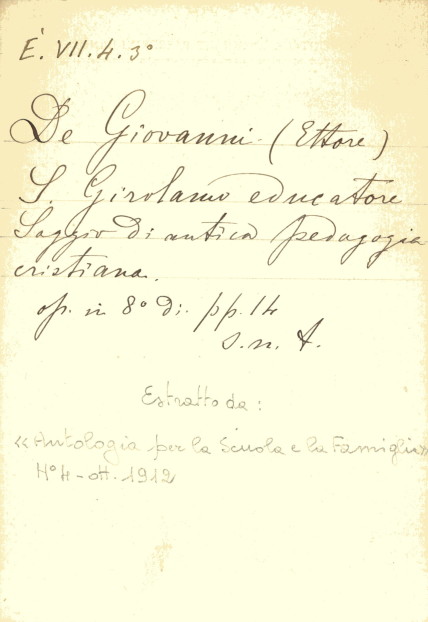 E. VII. 4. 3°
De Giovanni (Ettore)
S. Girolamo educatore
Saggio di antica pedagogia
cristiana.
op. in 8° di pp. 14
s. n. t.
Estratto da:
«Antologia per la Scuola e la Famiglia»
N° 4 - ott. 1912